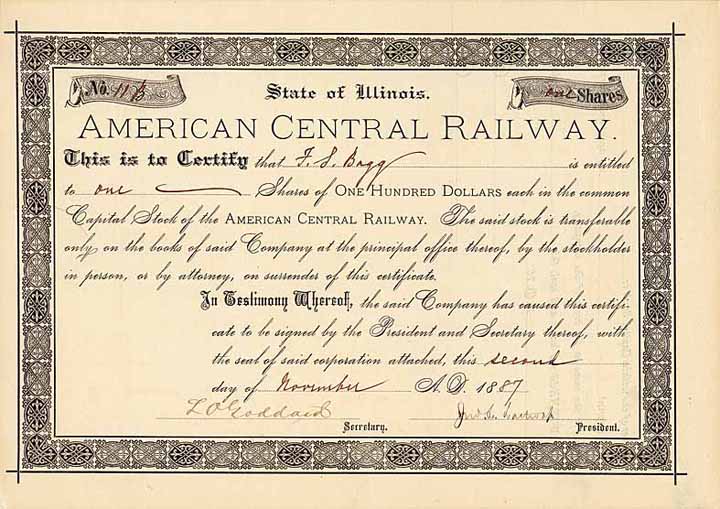 No. 113
State of Illinois.
one Shares
AMERICAN CENTRAL RAILWAY.
This is to Certify that F. S. Bagg is entitled
to one Shares of ONE HUNDRED DOLLARS each in the common
Capital Stock of the AMERICAN CENTRAL RAILWAY. The said stock is transferable
only on the books of said Company at the principal office thereof, by the stockholder
in person, or by attorney, on surrender of this certificate.
In Testimony Whereof, the said Company has caused this certifi-
cate to be signed by the President and Secretary thereof, with
the seal of said corporation attached, this second
day of November A.D. 1887
L O Goddard
Secretary.
President.